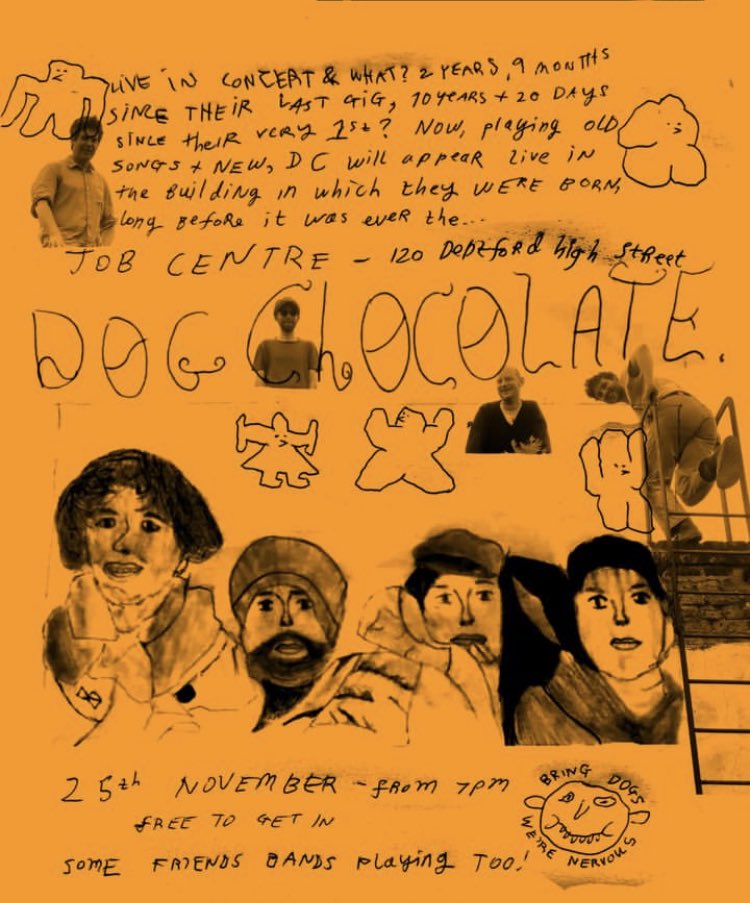 LIVE IN CONCERT & WHAT? 2 YEARS, 9 MONTHS
SINCE THEIR LAST GIG, 10 YEARS + 20 DAYS
SINCE their very 1st? NOW, playing OLD
SONGS + NEW, DC will appear live in
the BUILDING in which they WERE BORN,
long BEFORE it was ever the...
JOB CENTRE - 120 Deptford high Street
DOG ChOCOLATE.
25th NOVEMBER - from 7pm
FREE TO GET IN
SOME FRIENDS BANDS Playing TOO!
BRING DOGS
WE'RE NERVOUS